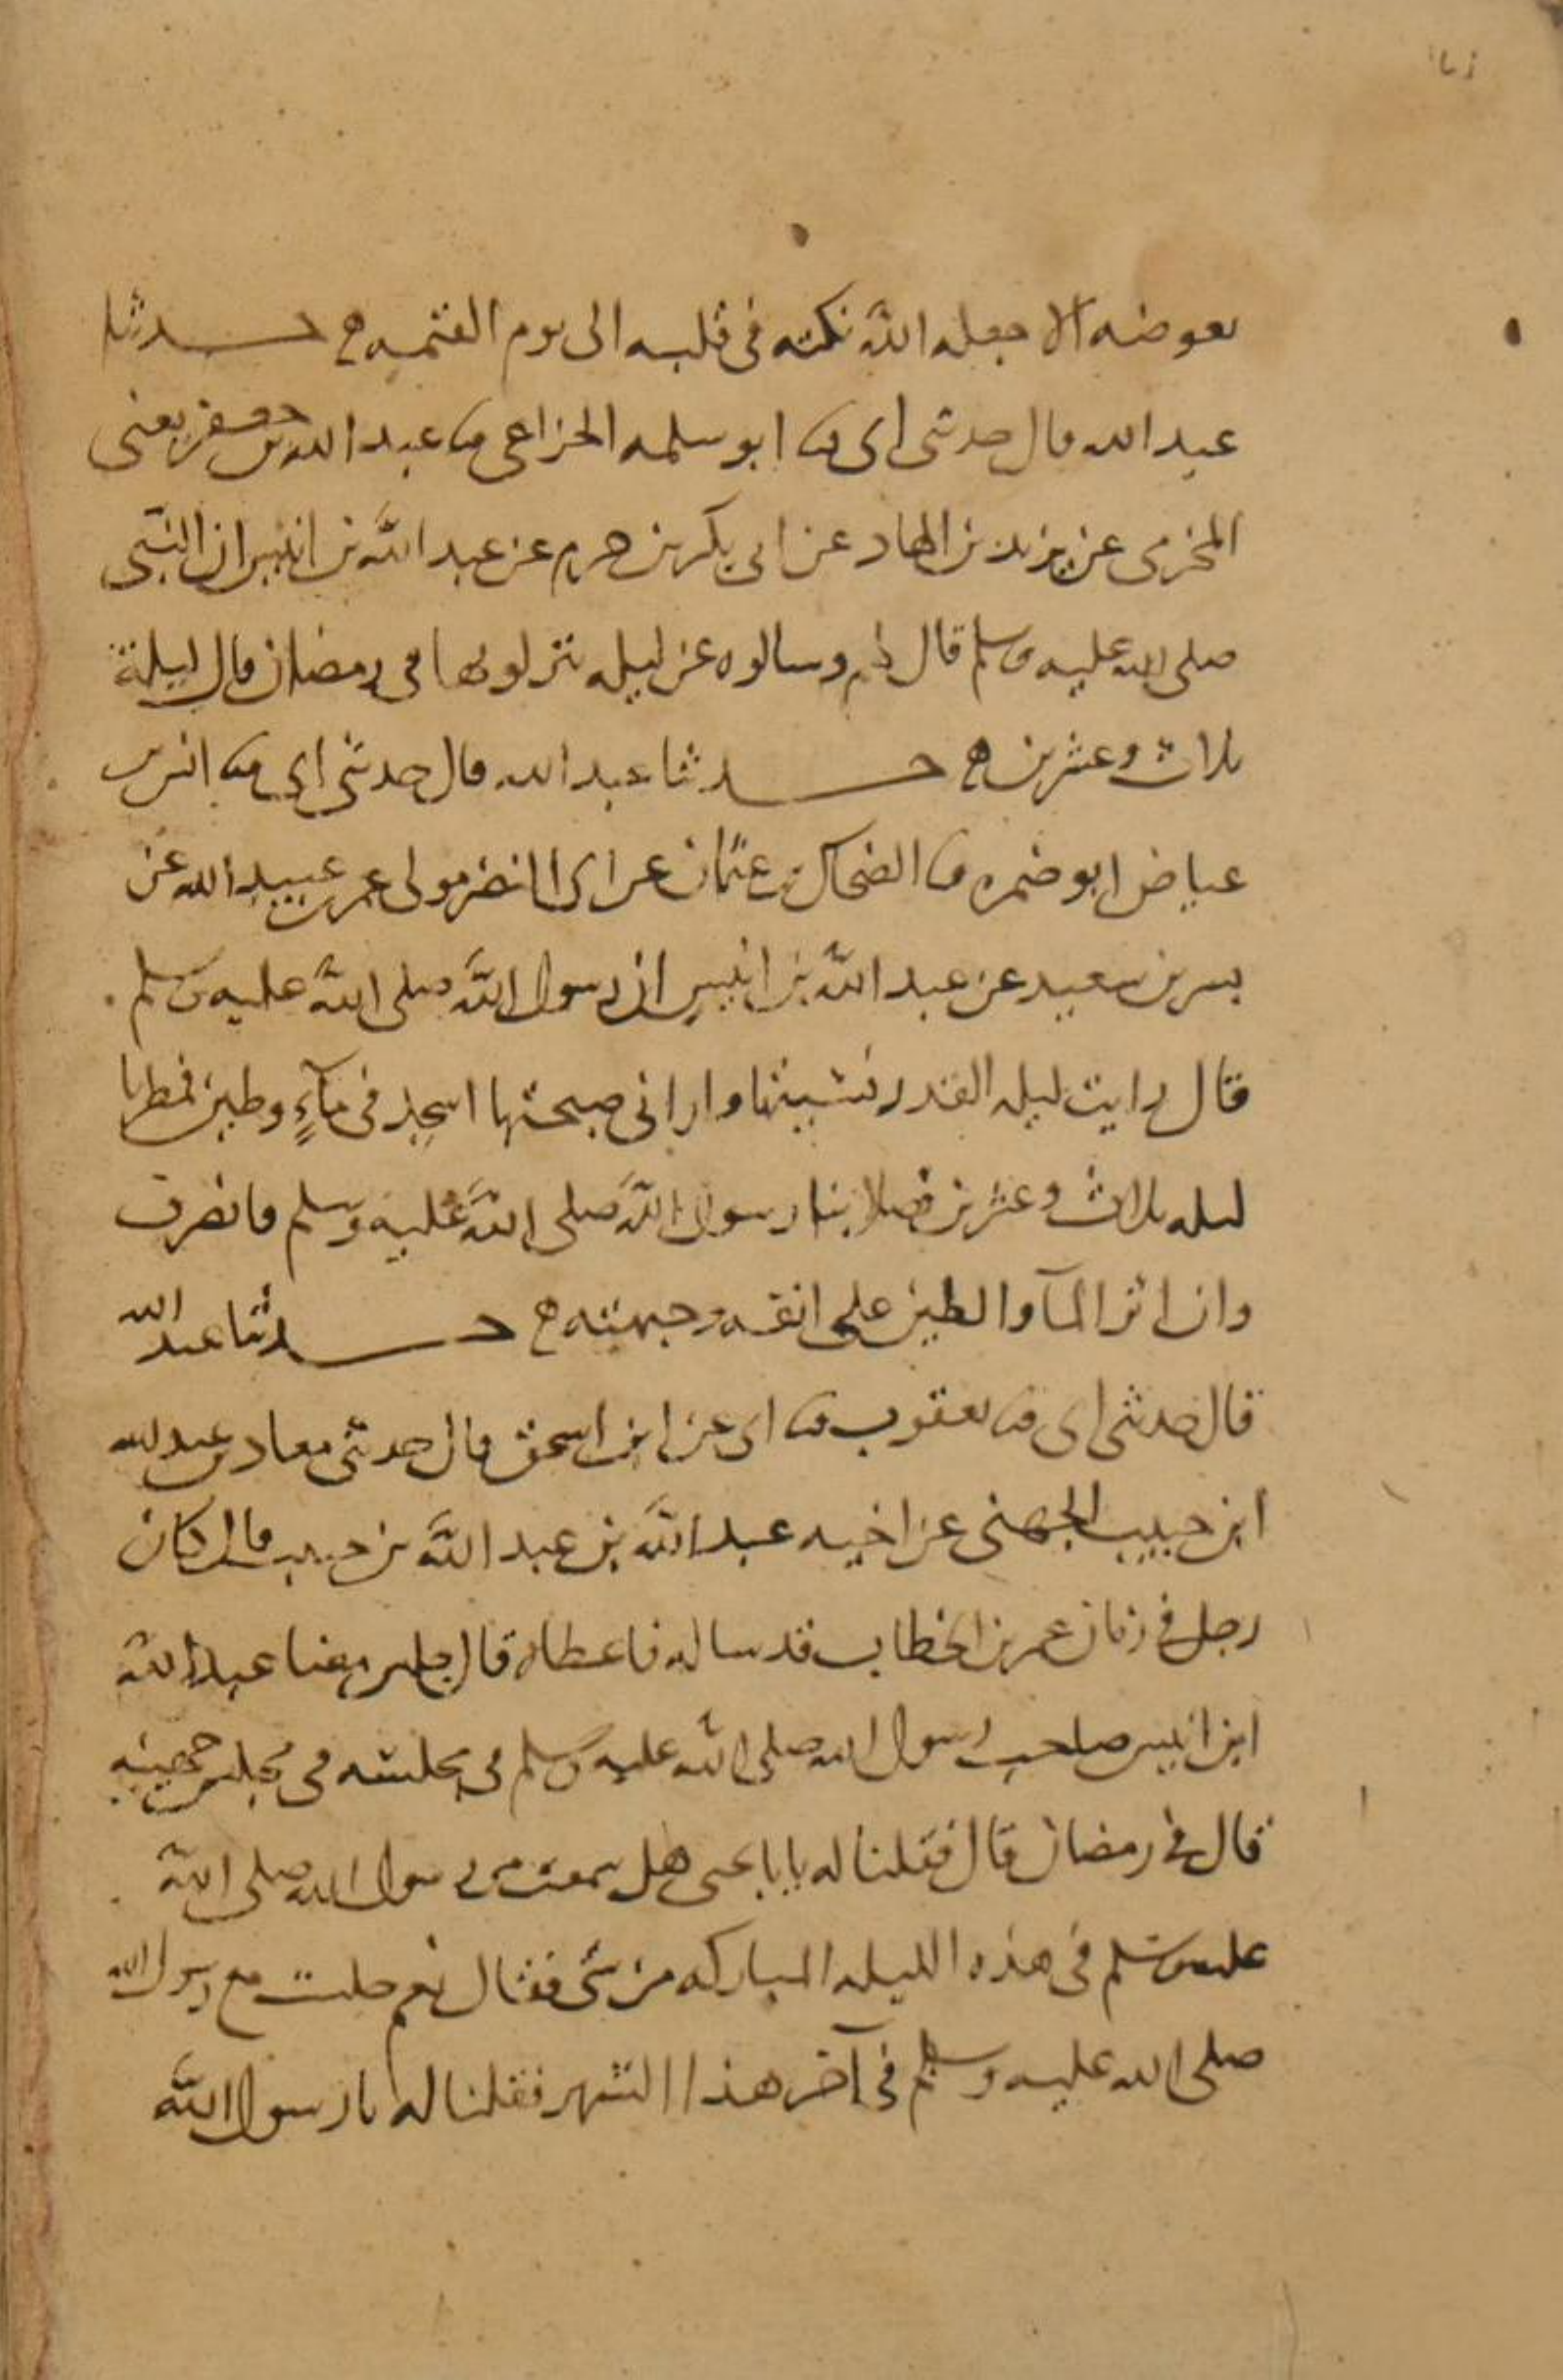 بعوضه الا جعله الله نكته فى قلبه الى يوم القيمه ه حدثنا
عبد الله قال حدثنى ابى ثنا ابو سلمه الخزاعى ثنا عبد الله بن جعفر يعنى
المخرمى عن يزيد بن الهاد عن ابى بكر بن حزم عن عبد الله بن انيس ان النبى
صلى الله عليه وسلم قال لهم وسالوه عن ليله يتراونها فى رمضان قال ليلة
ثلاث وعشرين ه حدثنا عبد الله قال حدثنى ابى ثنا انس بن
عياض ابو ضمره ثنا الضحاك بن عثمان عن ابى النضر مولى عمر بن عبيد الله عن
بسر بن سعيد عن عبد الله بن انيس ان رسول الله صلى الله عليه وسلم
قال رايت ليله القدر نسيتها وارانى صبحتها اسجد فى مآءٍ وطين فمطرنا
ليله ثلاث وعشرين فصلا بنا رسول الله صلى الله عليه وسلم فانصرف
وان اثر المآ والطين على انفه وجبهته ه حدثنا عبد الله
قال حدثنى ابى ثنا يعقوب ثنا ابى عن ابن اسحق قال حدثنى معاذ بن عبد الله
ابن حبيب الجهنى عن اخيه عبد الله بن عبد الله بن حبيب قال كان
رجل فى زمان عمر بن الخطاب قد ساله فاعطاه قال جلس معنا عبد الله
ابن انيس صاحب رسول الله صلى الله عليه وسلم فى مجلسه فى مجلس جهينه
قال فى رمضان قال فقلنا له يابا يحيى هل سمعت من رسول الله صلى الله
عليه وسلم فى هذه الليله المباركه من شى فقال نعم جلست مع رسول الله
صلى الله عليه وسلم فى آخر هذا الشهر فقلنا له يا رسول الله